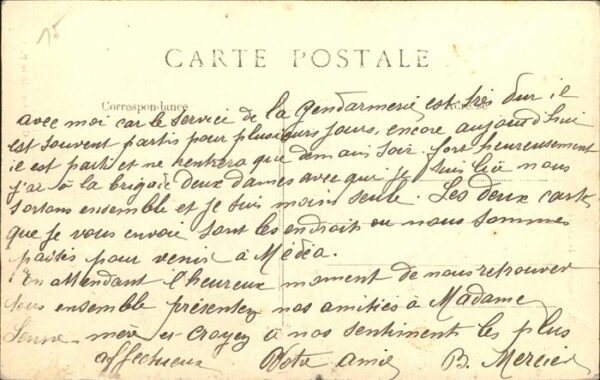 15
CARTE POSTALE
Correspondance
avec moi car le service de la gendarmerie est très dur il
est souvent partis pour plusieurs jours, encore aujourd'hui
il est parti et ne rentrera que demain soir. fore heureusement
j'ai à la brigade deux dames avec qui je suis liée nous
sortons ensemble et je suis moins seule. Les deux cartes
que je vous envoie sont les endroits ou nous sommes
passés pour venir à Médéa.
En attendant l'heureux moment de nous retrouver
tous ensemble présentez nos amitiés à Madame
mère et croyez à nos sentiments les plus
affectueux Votre amie B. Mercier